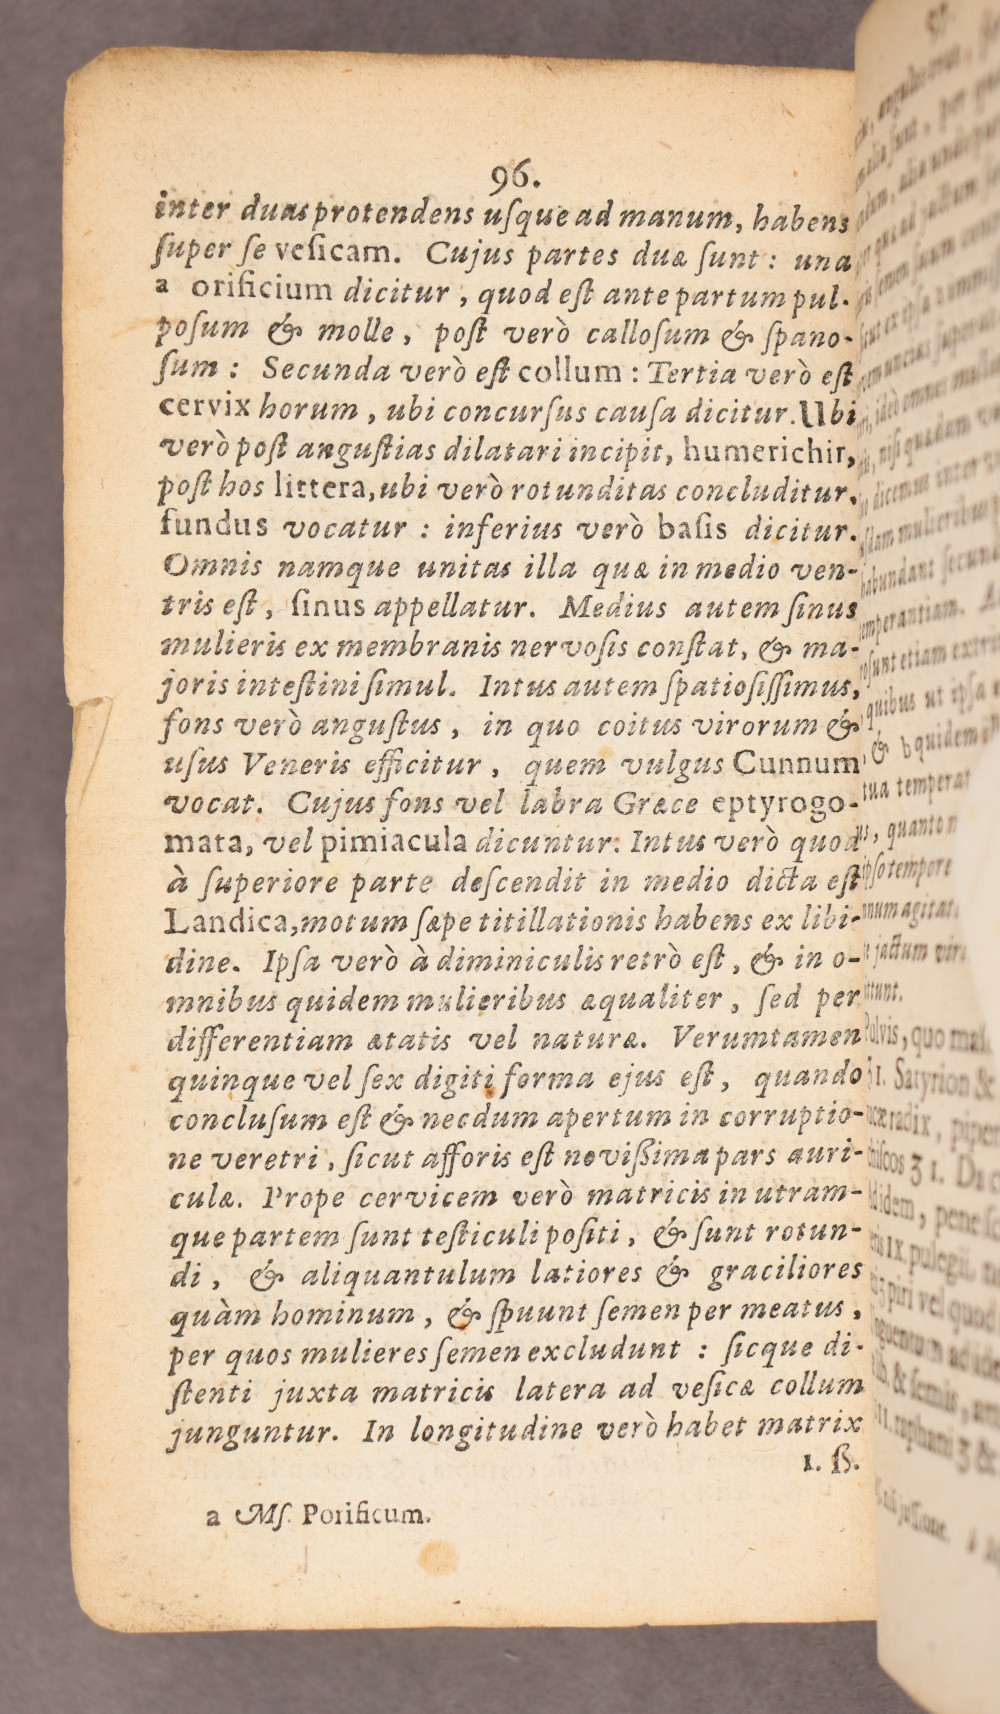 96.
inter duas protendens uſque ad manum, habens
ſuper ſe veſicam. Cujus partes duæ ſunt: una
a orificium dicitur, quod eſt ante partum pul-
poſum & molle, poſt verò calloſum & ſpano-
ſum: Secunda verò eſt collum: Tertia verò eſt
cervix horum, ubi concurſus cauſa dicitur. Ubi
verò poſt anguſtias dilatari incipit, humerichir,
poſt hos littera, ubi verò rotunditas concluditur,
fundus vocatur: inferius verò baſis dicitur.
Omnis namque unitas illa quæ in medio ven-
tris eſt, ſinus appellatur. Medius autem ſinus
mulieris ex membranis nervoſis conſtat, & ma-
joris inteſtini ſimul. Intus autem ſpatioſiſſimus,
fons verò anguſtus, in quo coitus virorum &
uſus Veneris efficitur, quem vulgus Cunnum
vocat. Cujus fons vel labra Græce eptyrogo-
mata, vel pimiacula dicuntur. Intus verò quod
à ſuperiore parte deſcendit in medio dicta eſt
Landica, motum ſæpe titillationis habens ex libi-
dine. Ipſa verò à diminiculis retrò eſt, & in o-
mnibus quidem mulieribus æqualiter, ſed per
differentiam ætatis vel naturæ. Verumtamen
quinque vel ſex digiti forma ejus eſt, quando
concluſum eſt & necdum apertum in corruptio-
ne veretri, ſicut afforis eſt noviſſima pars auri-
culæ. Prope cervicem verò matricis in utram-
que partem ſunt teſticuli poſiti, & ſunt rotun-
di, & aliquantulum latiores & graciliores
quàm hominum, & ſpuunt ſemen per meatus,
per quos mulieres ſemen excludunt: ſicque di-
ſtenti juxta matricis latera ad veſicæ collum
junguntur. In longitudine verò habet matrix
1. ß.
a Mſ. Porificum.